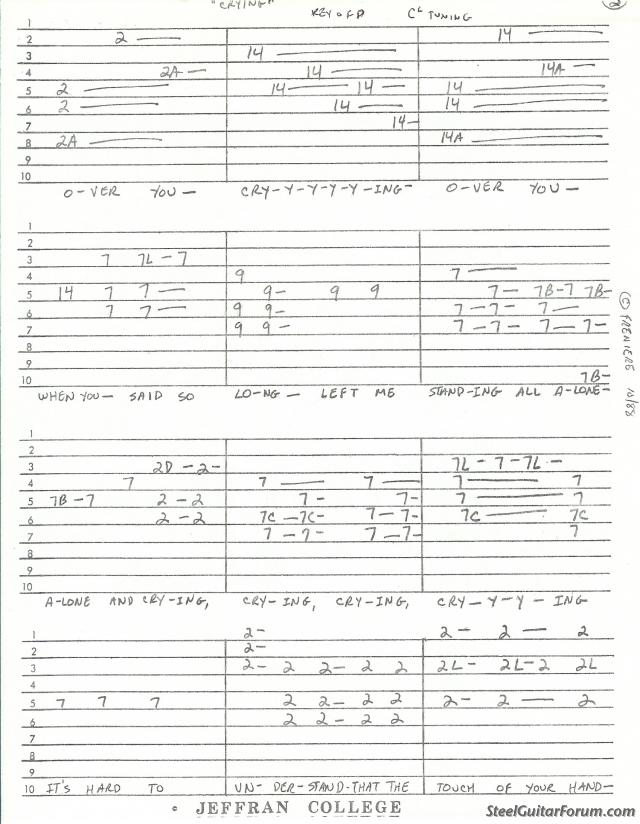 "CRYING" KEY OF D C6 TUNING 2
1
2 2 — 14 —
3 14 —
4 2A — 14 — 14A —
5 2 — 14 — 14 — 14 —
6 2 — 14 — 14 —
7 14 —
8 2A — 14A —
9
10
O-VER YOU — CRY-Y-Y-Y-Y-ING- O-VER YOU —
1
2
3 7 7L - 7
4 9 7 —
5 14 7 7 — 9- 9 9 7 — 7B-7 7B-
6 7 7 — 9 9- 7 - 7 - 7 —
7 9 9- 7 - 7 - 7 — 7 -
8
9
10 7B-
WHEN YOU — SAID SO LO-NG — LEFT ME STAND-ING ALL A-LONE-
© FRENIERE 10/88
1
2
3 2D - 2 - 7L - 7 - 7L -
4 7 7 — 7 — 7 — 7
5 7B - 7 2 - 2 7 - 7- 7 — 7
6 2 - 2 7C - 7C- 7 - 7- 7C — 7C
7 7 - 7- 7 - 7- 7
8
9
10
A-LONE AND CRY-ING, CRY-ING, CRY-ING, CRY-Y-Y-ING
1 2- 2 - 2 — 2
2 2-
3 2- 2 2- 2 2 2L - 2L-2 2L
4
5 7 7 7 2 2- 2 2 2- 2 — 2
6 2 2- 2 2
7
8
9
10 IT'S HARD TO UN-DER-STAND-THAT THE TOUCH OF YOUR HAND-
JEFFRAN COLLEGE
SteelGuitarForum.com